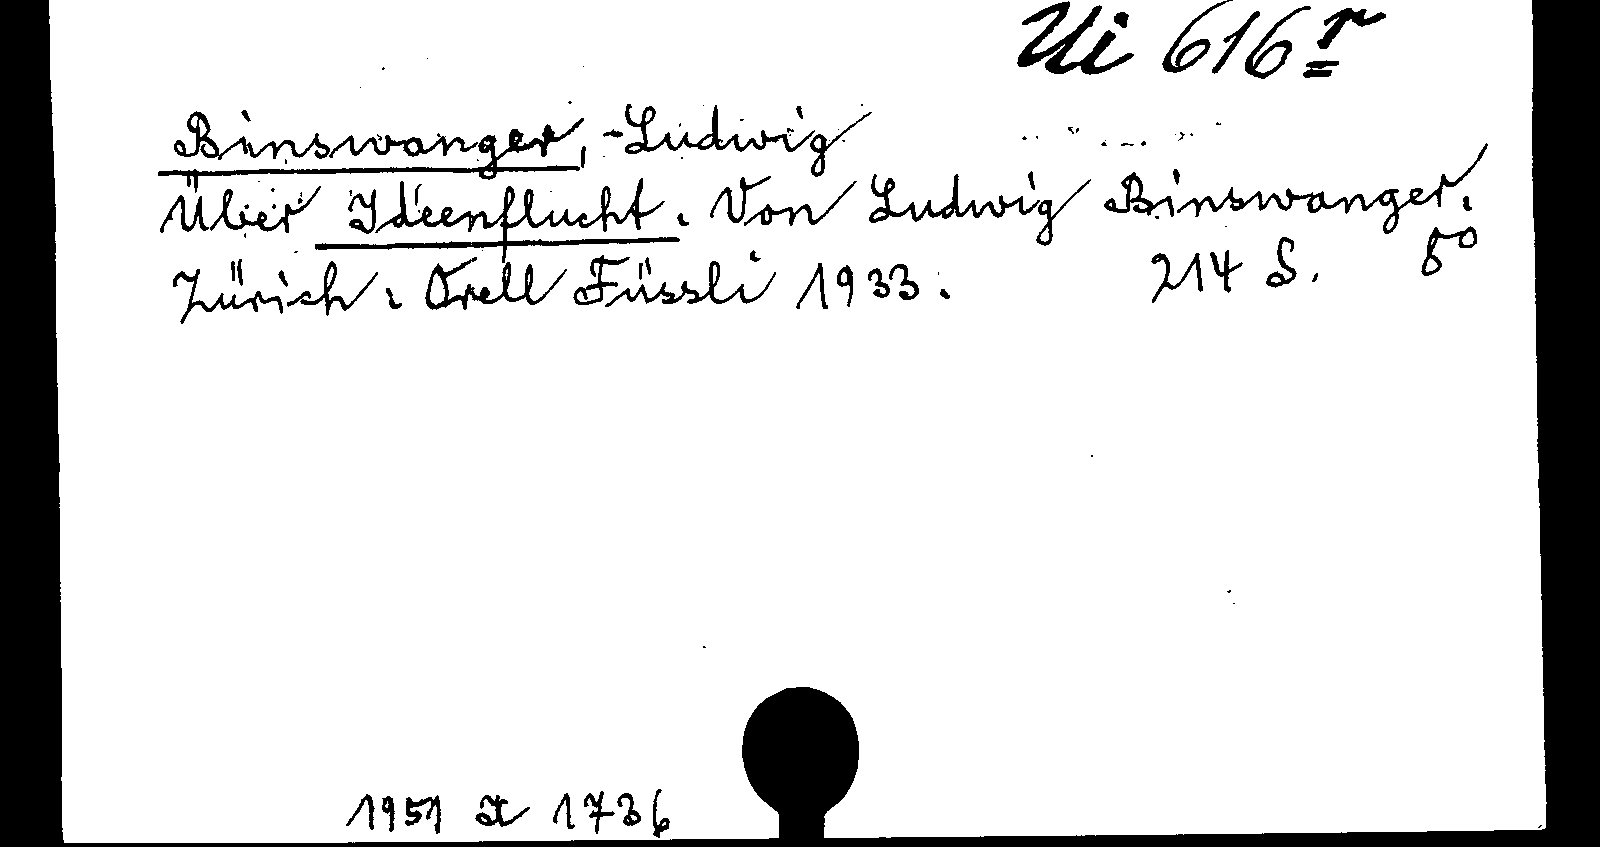 Ui 616 r
Binswanger, Ludwig
Über Ideenflucht. Von Ludwig Binswanger.
Zürich: Orell Füssli 1933. 214 S. 8°
1951 1736